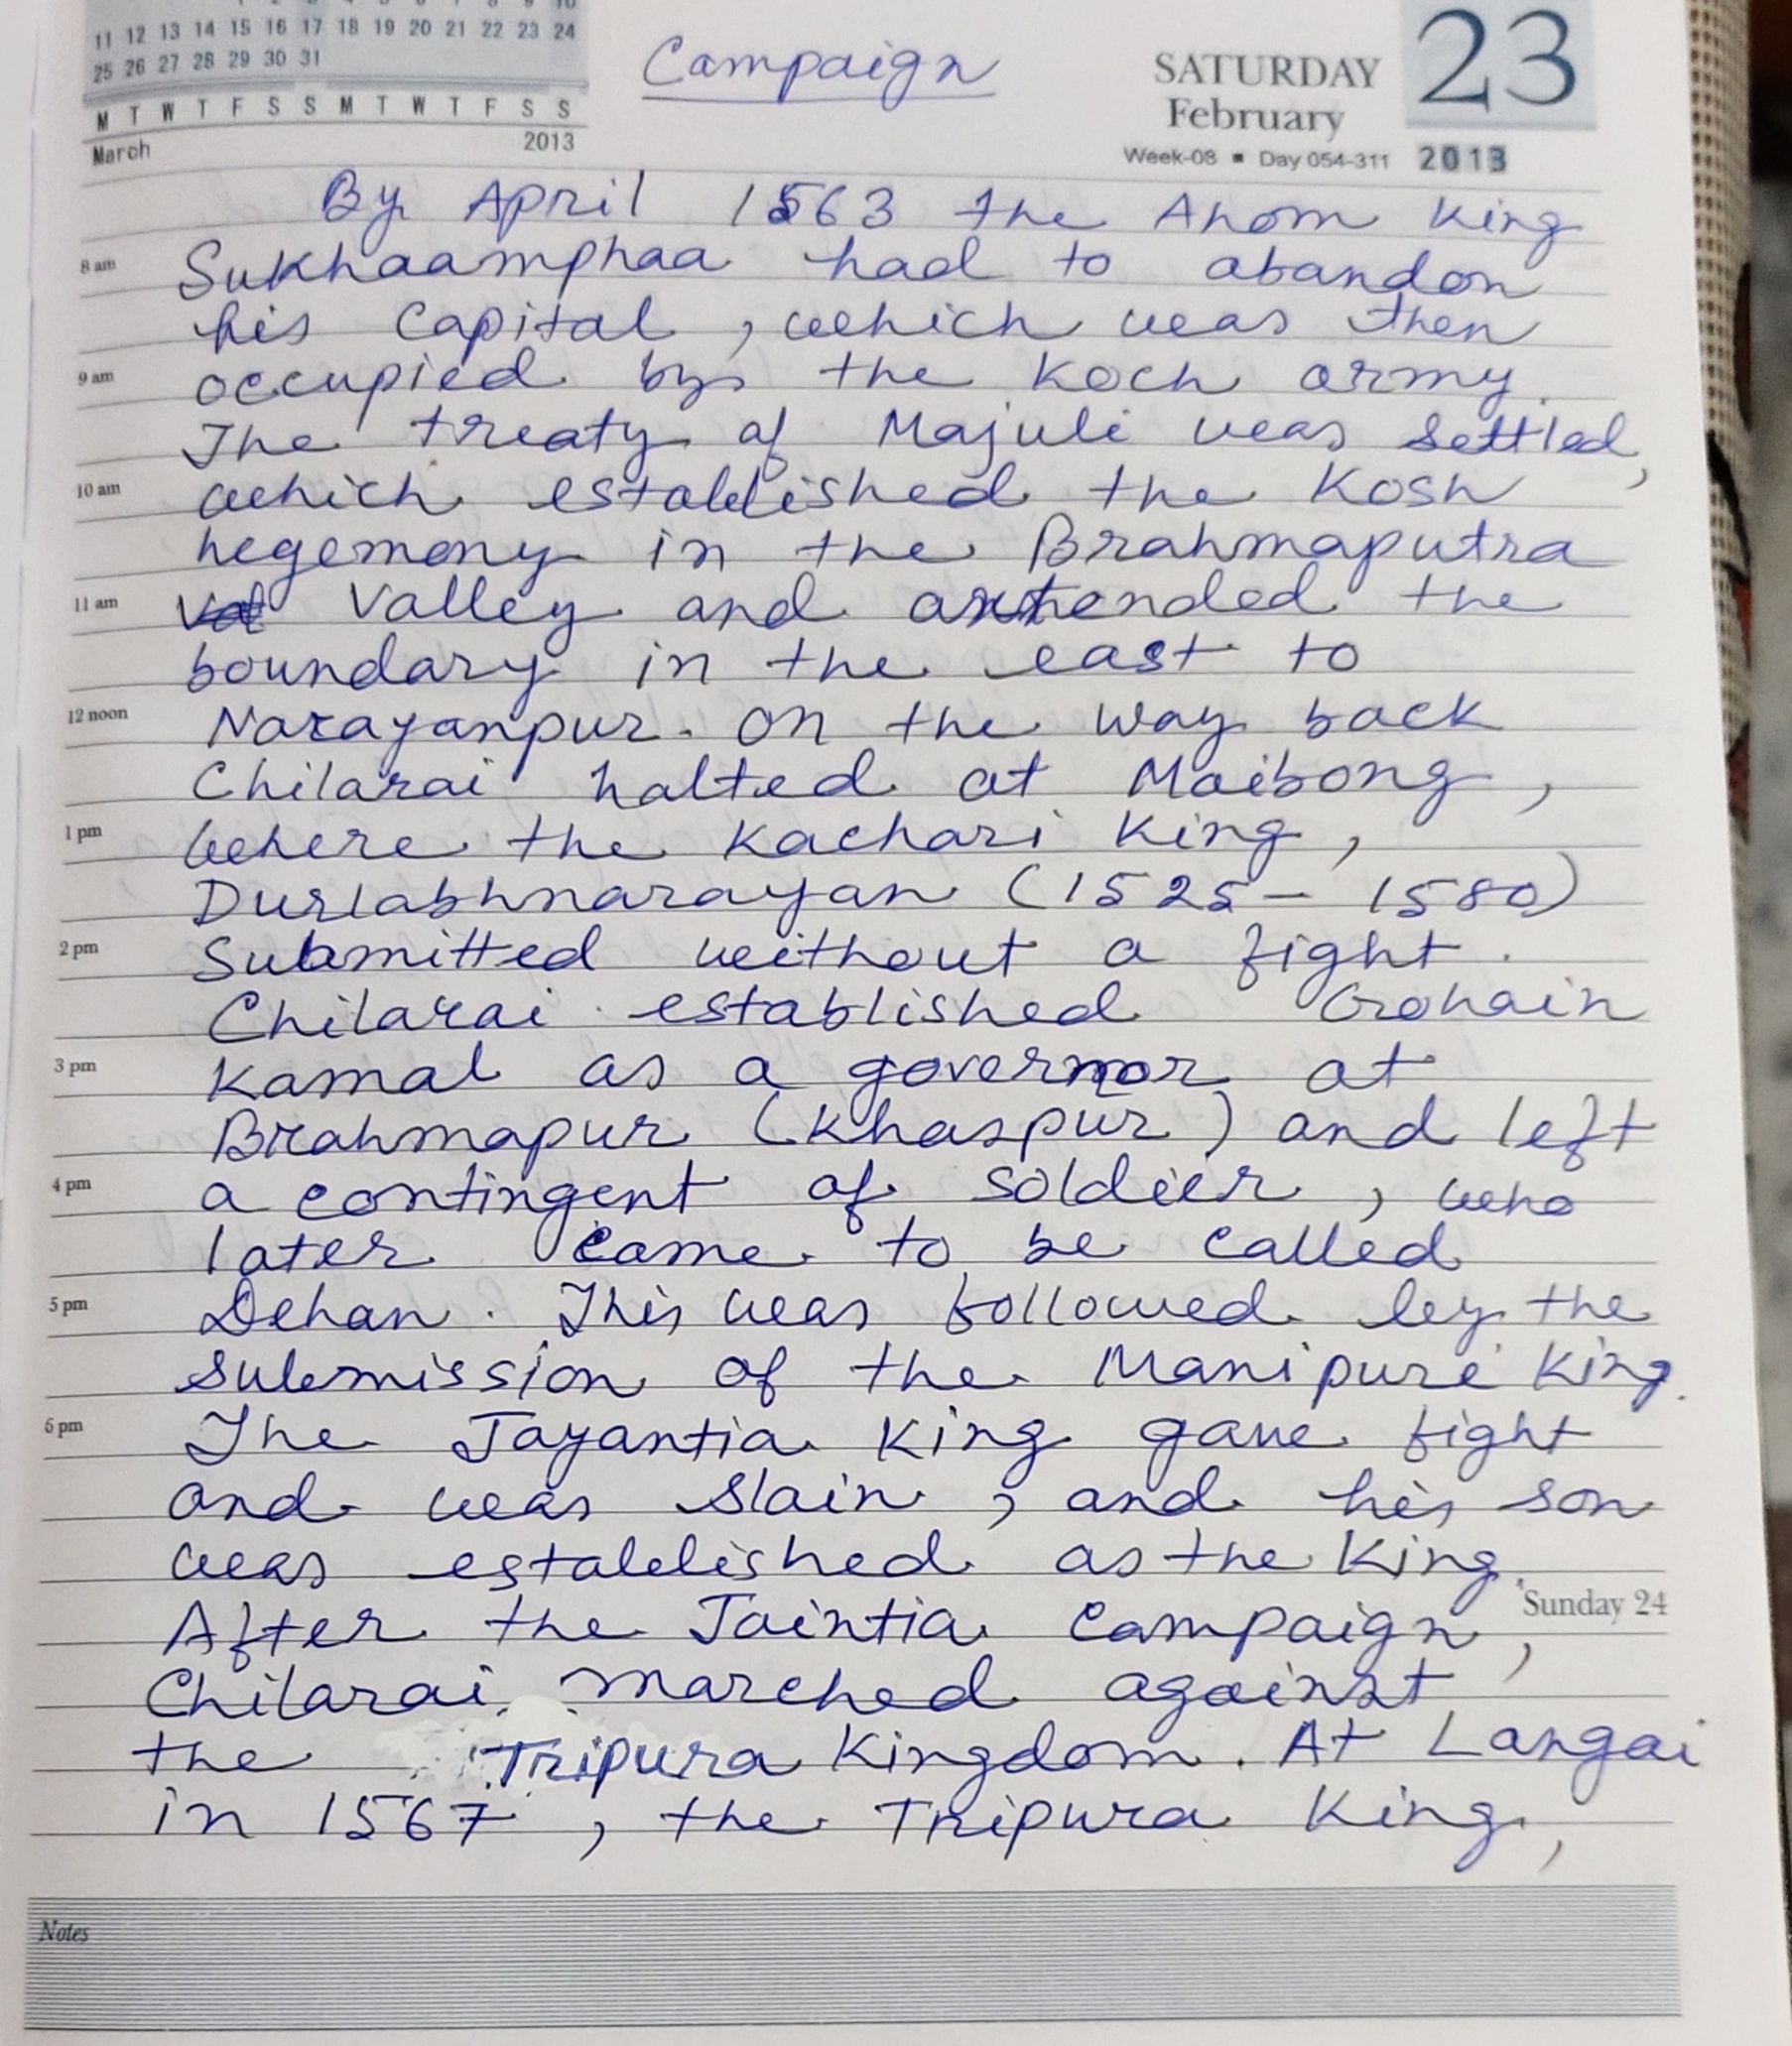 1 2 3 4 5 6 7 8 9 10
11 12 13 14 15 16 17 18 19 20 21 22 23 24
25 26 27 28 29 30 31
M T W T F S S M T W T F S S
March 2013
Campaign
SATURDAY
February
23
Week-08 ▪ Day 054-311 2013
By April 1563 the Ahom King
8 am Sukhaamphaa had to abandon
his Capital, which was then
9 am occupied by the Koch army.
The treaty of Majuli was settled,
10 am which established the Kosh
hegemony in the Brahmaputra
11 am Valley and extended the
boundary in the east to
12 noon Narayanpur. On the way back
Chilarai halted at Maibong,
1 pm where the Kachari King,
Durlabhnarayan (1525 - 1580)
2 pm Submitted without a fight.
Chilarai established Gohain
3 pm Kamal as a governor at
Brahmapur (Khaspur) and left
4 pm a contingent of soldier, who
later came to be called
5 pm Dehan. This was followed by the
submission of the Manipuri King.
6 pm The Jayantia King gave fight
and was slain, and his son
was established as the King.
Sunday 24
After the Jaintia Campaign,
Chilarai marched against
the Tripura Kingdom. At Langai
in 1567, the Tripura King,
Notes